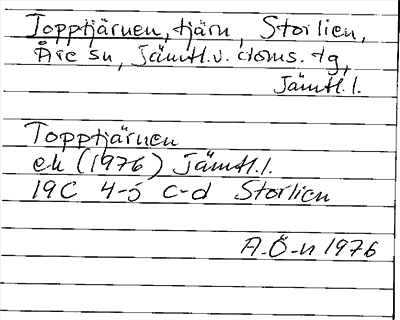 Topptjärnen, tjärn, Storlien,
Åre sn, Jämtl. v. doms. tg,
Jämtl. l.
Topptjärnen
ek (1976) Jämtl. l.
19C 4-5 c-d Storlien
A. Ö-n 1976